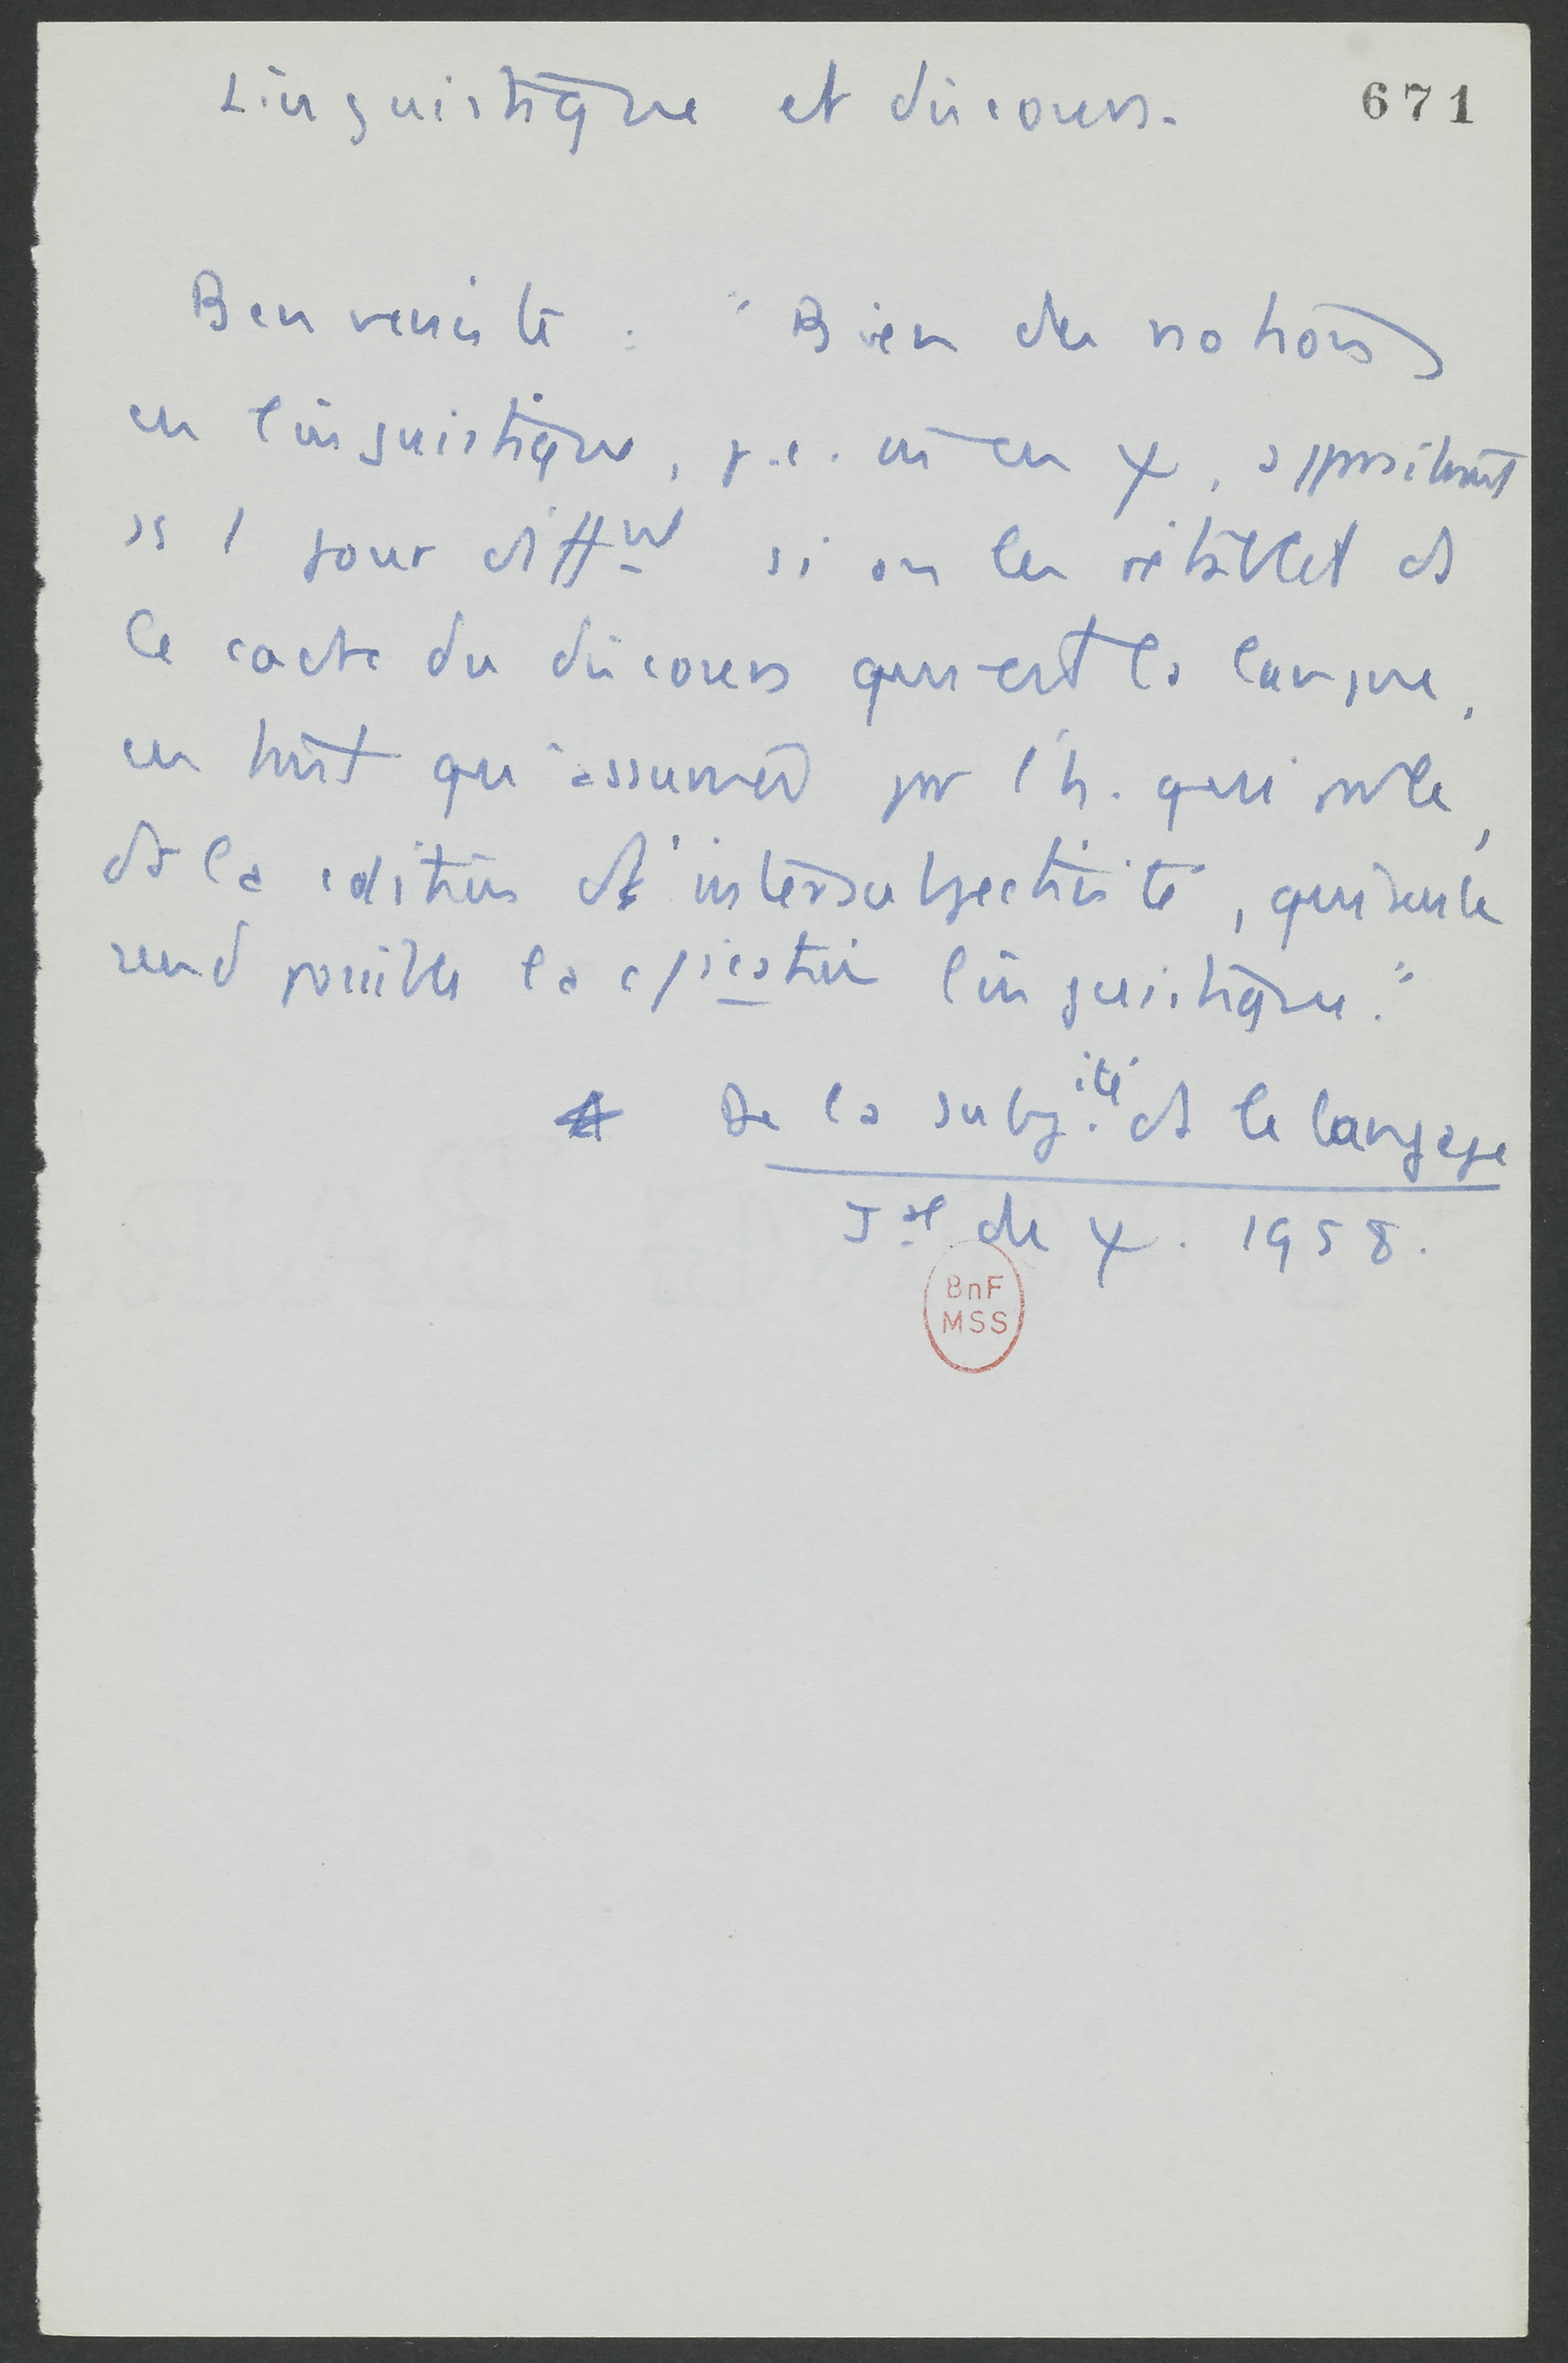 Linguistique et discours.
671
Benveniste : "Bien des notions
en linguistique, p.e. m en ψ, apparaîtront
ss 1 jour diff<sup>nt</sup> si on les rétablit ds
le cadre du discours, qui est la langue,
en tant qu'assumée par l'h. qui parle,
ds la cdition d'intersubjectivité, qui seule
rend possible la c/ication linguistique."
De la subj.ité ds le langage
Jal de ψ. 1958.
BnF
MSS